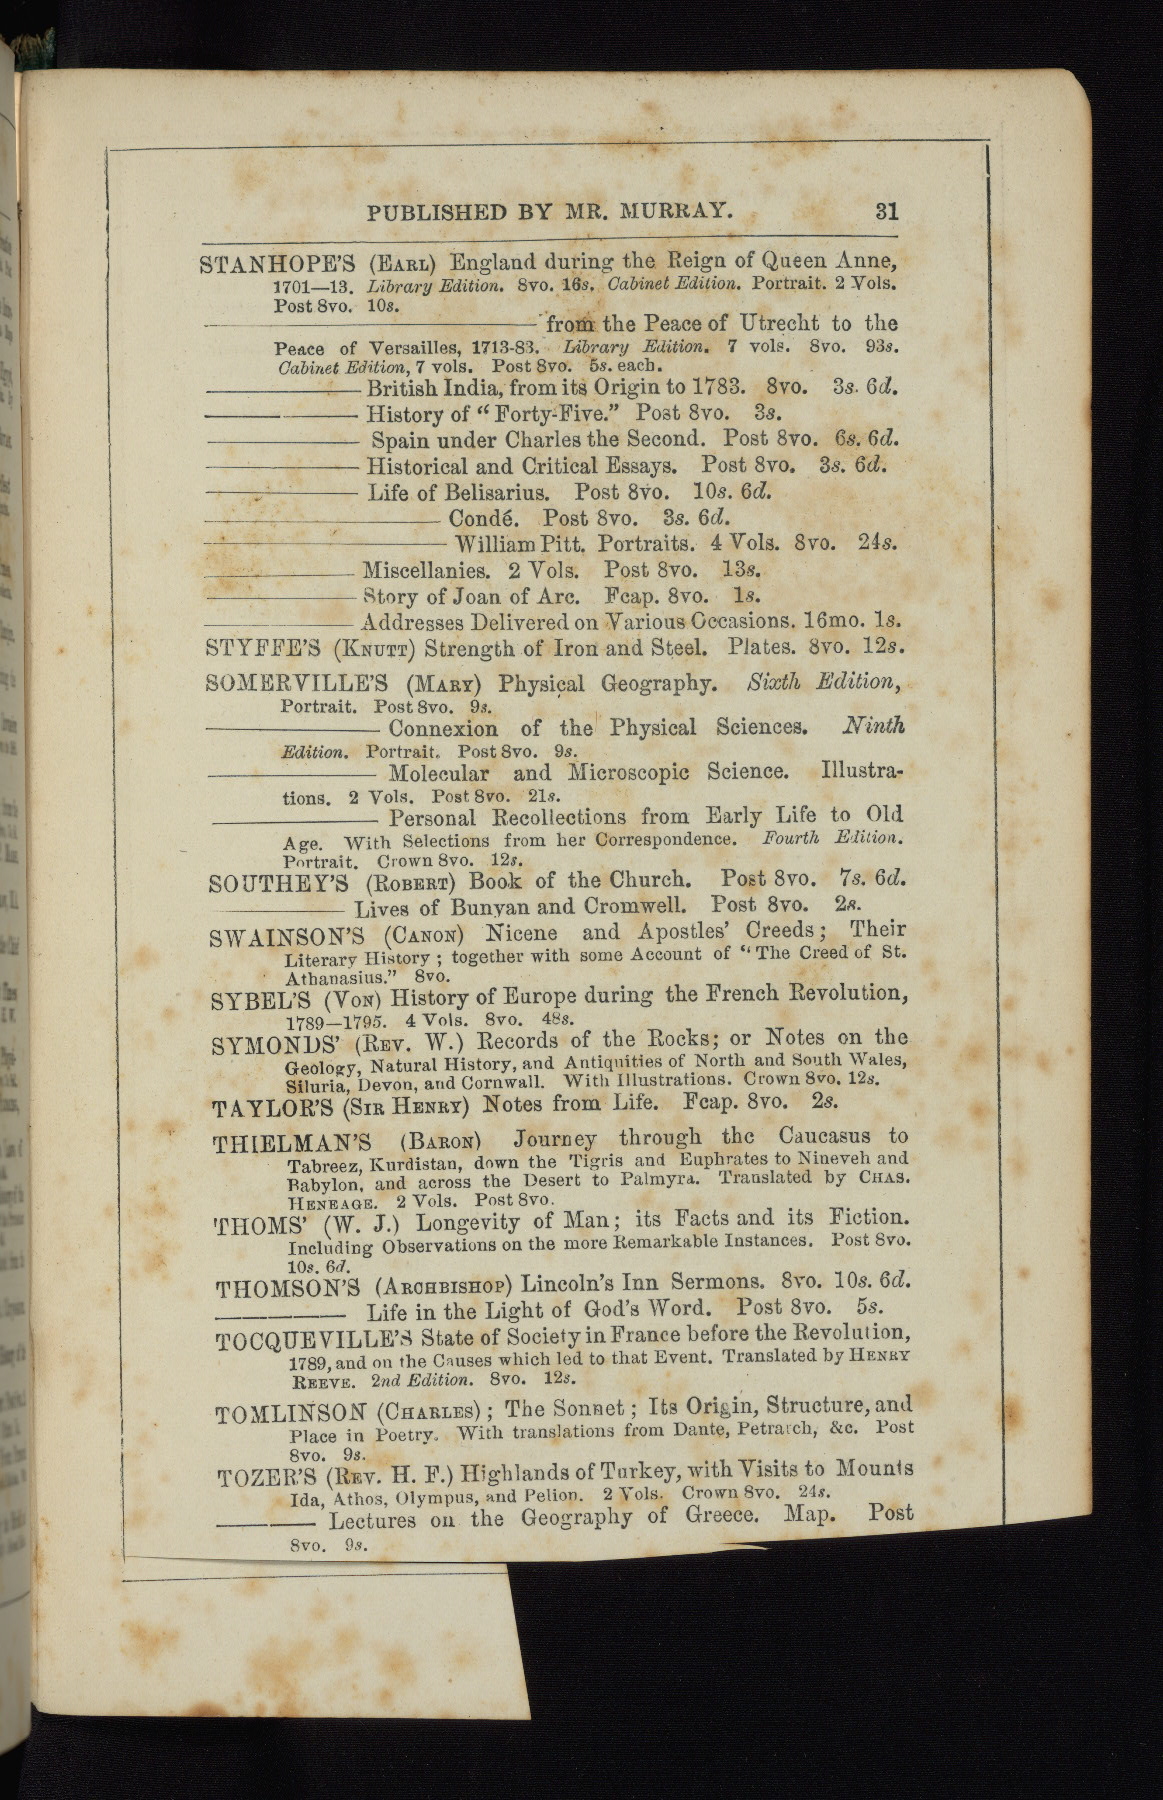 PUBLISHED BY MR. MURRAY. 31
STANHOPE'S (EARL) England during the Reign of Queen Anne,
1701—13. Library Edition. 8vo. 16s. Cabinet Edition. Portrait. 2 Vols.
Post 8vo. 10s.
——— from the Peace of Utrecht to the
Peace of Versailles, 1713-83. Library Edition. 7 vols. 8vo. 93s.
Cabinet Edition, 7 vols. Post 8vo. 5s. each.
——— British India, from its Origin to 1783. 8vo. 3s. 6d.
——— History of “Forty-Five.” Post 8vo. 3s.
——— Spain under Charles the Second. Post 8vo. 6s. 6d.
——— Historical and Critical Essays. Post 8vo. 3s. 6d.
——— Life of Belisarius. Post 8vo. 10s. 6d.
——— Condé. Post 8vo. 3s. 6d.
——— William Pitt. Portraits. 4 Vols. 8vo. 24s.
——— Miscellanies. 2 Vols. Post 8vo. 13s.
——— Story of Joan of Arc. Fcap. 8vo. 1s.
——— Addresses Delivered on Various Occasions. 16mo. 1s.
STYFFE'S (KNUTT) Strength of Iron and Steel. Plates. 8vo. 12s.
SOMERVILLE'S (MARY) Physical Geography. Sixth Edition,
Portrait. Post 8vo. 9s.
——— Connexion of the Physical Sciences. Ninth
Edition. Portrait. Post 8vo. 9s.
——— Molecular and Microscopic Science. Illustra-
tions. 2 Vols. Post 8vo. 21s.
——— Personal Recollections from Early Life to Old
Age. With Selections from her Correspondence. Fourth Edition.
Portrait. Crown 8vo. 12s.
SOUTHEY'S (ROBERT) Book of the Church. Post 8vo. 7s. 6d.
——— Lives of Bunyan and Cromwell. Post 8vo. 2s.
SWAINSON'S (CANON) Nicene and Apostles' Creeds; Their
Literary History; together with some Account of “The Creed of St.
Athanasius.” 8vo.
SYBEL'S (VON) History of Europe during the French Revolution,
1789—1795. 4 Vols. 8vo. 48s.
SYMONDS' (REV. W.) Records of the Rocks; or Notes on the
Geology, Natural History, and Antiquities of North and South Wales,
Siluria, Devon, and Cornwall. With Illustrations. Crown 8vo. 12s.
TAYLOR'S (SIR HENRY) Notes from Life. Fcap. 8vo. 2s.
THIELMAN'S (BARON) Journey through the Caucasus to
Tabreez, Kurdistan, down the Tigris and Euphrates to Nineveh and
Babylon, and across the Desert to Palmyra. Translated by CHAS.
HENEAGE. 2 Vols. Post 8vo.
THOMS' (W. J.) Longevity of Man; its Facts and its Fiction.
Including Observations on the more Remarkable Instances. Post 8vo.
10s. 6d.
THOMSON'S (ARCHBISHOP) Lincoln's Inn Sermons. 8vo. 10s. 6d.
——— Life in the Light of God's Word. Post 8vo. 5s.
TOCQUEVILLE'S State of Society in France before the Revolution,
1789, and on the Causes which led to that Event. Translated by HENRY
REEVE. 2nd Edition. 8vo. 12s.
TOMLINSON (CHARLES); The Sonnet; Its Origin, Structure, and
Place in Poetry. With translations from Dante, Petrarch, &c. Post
8vo. 9s.
TOZER'S (REV. H. F.) Highlands of Turkey, with Visits to Mounts
Ida, Athos, Olympus, and Pelion. 2 Vols. Crown 8vo. 24s.
——— Lectures on the Geography of Greece. Map. Post
8vo. 9s.